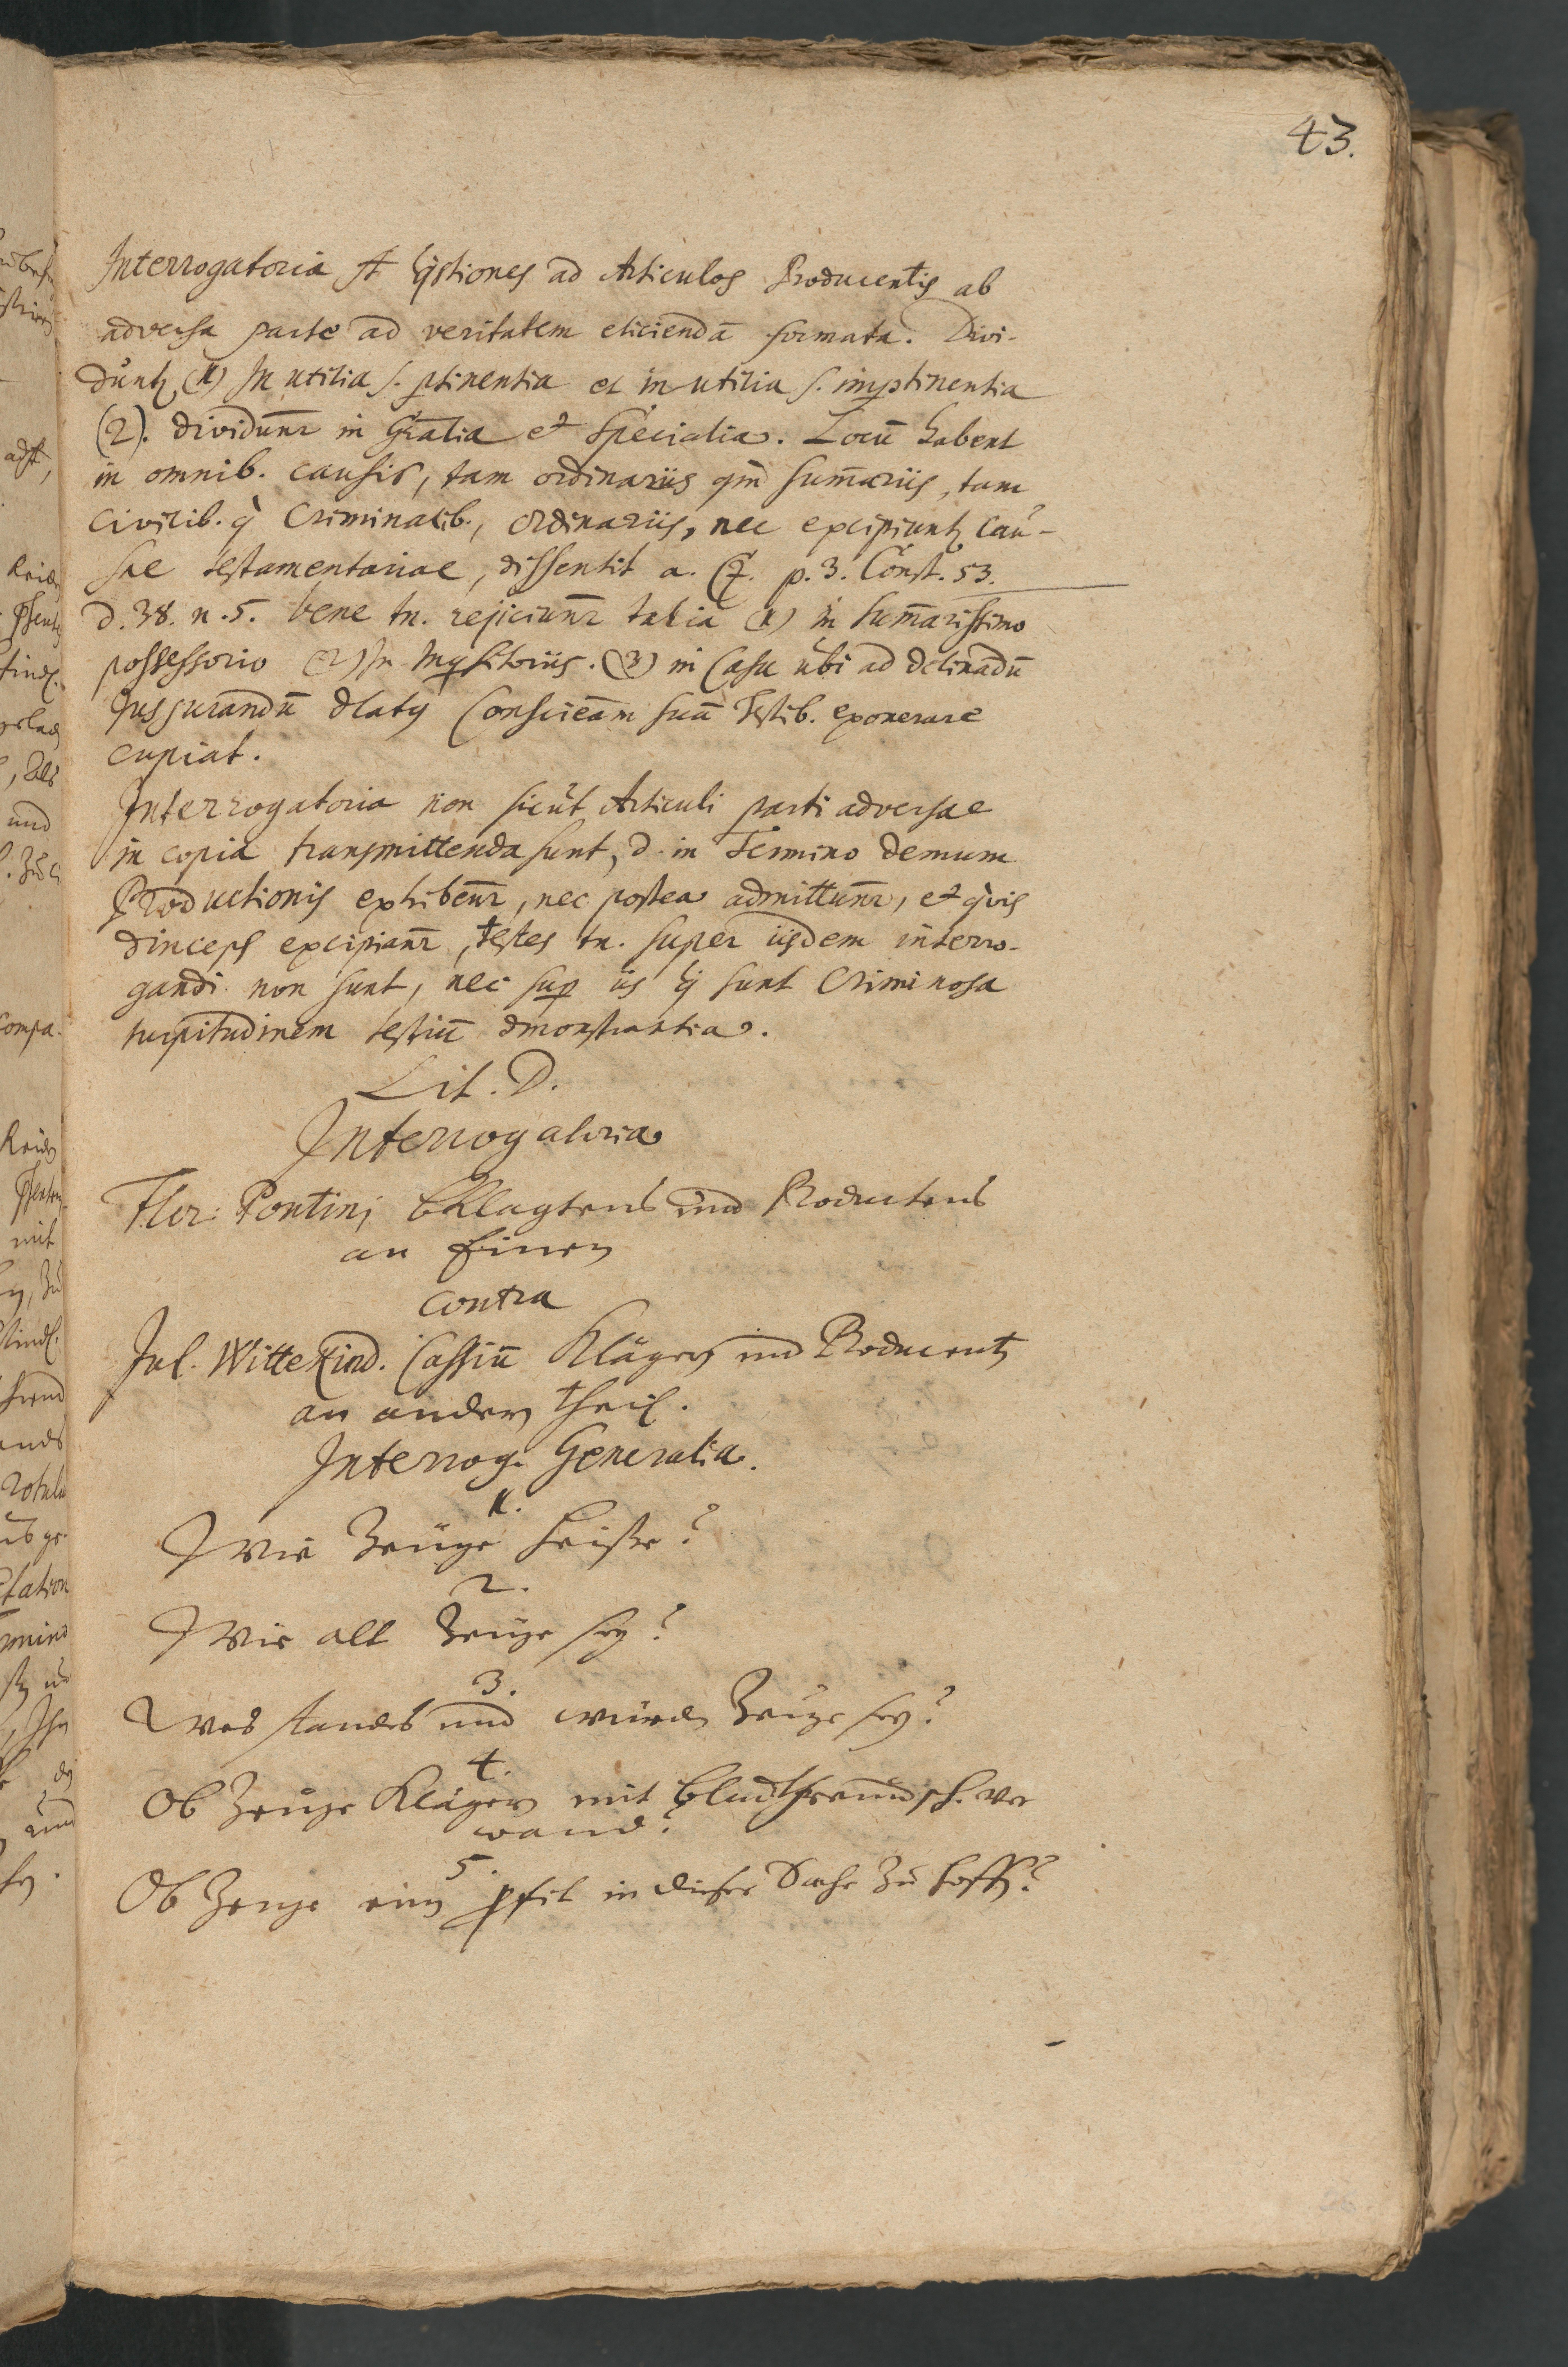 43.
Interrogatoria st Qstiones ad Articulos Producentis ab
adversa parte ad veritatem eliciendā formata. Divi-
duntɀ (1) In utilia s. ptinentia et inutilia s. imptinentia
(2). dividunr in Gralia et Specialia. Locū habent
in omnib. causis, tam ordinariis qm sum̄ariis, tam
civilib. q Criminalib., ordinariis, nec excipiuntɀ cau-
sae testamentariae, dissentit a. C. p. 3. Const. 53.
d. 38. n. 5. bene tn. rejiciunr talia (1) in sum̄arissimo
possessorio (2) In Inqsitoriis. (3) in Casu ubi ad declinādū
Jusjurandū dlatū Conscieām suā Testib. exonerare
cupiat.
Interrogatoria non sicut Articuli parti adversae
in copia transmittenda sunt, d. in Termino demum
Productionis exhibenr, nec postea admittunr, et qvis
dinceps excipianr, testes tn. super iisdem interro-
gandi non sunt, nec sup iis q sunt Criminosa
turpitudinem testiū dmonstrantia.
Lit. D.
Interrogatoria
Flor: Pontini bKlagtens und Productens
an Einen
contra
Jul. Wittekind. Cassiū Klägern und Producentɀ
an andern theil.
Interrog. Generalia.
1.
Wie Zeuge heiße?
2.
Wie alt Zeuge sey?
3.
Wes standes und würden Zeuge sey?
4.
Ob Zeuge Klägern mit blutfreundsch. ver
wand?
5.
Ob Zeuge ein pfit in dieser Sache zu hoffen?